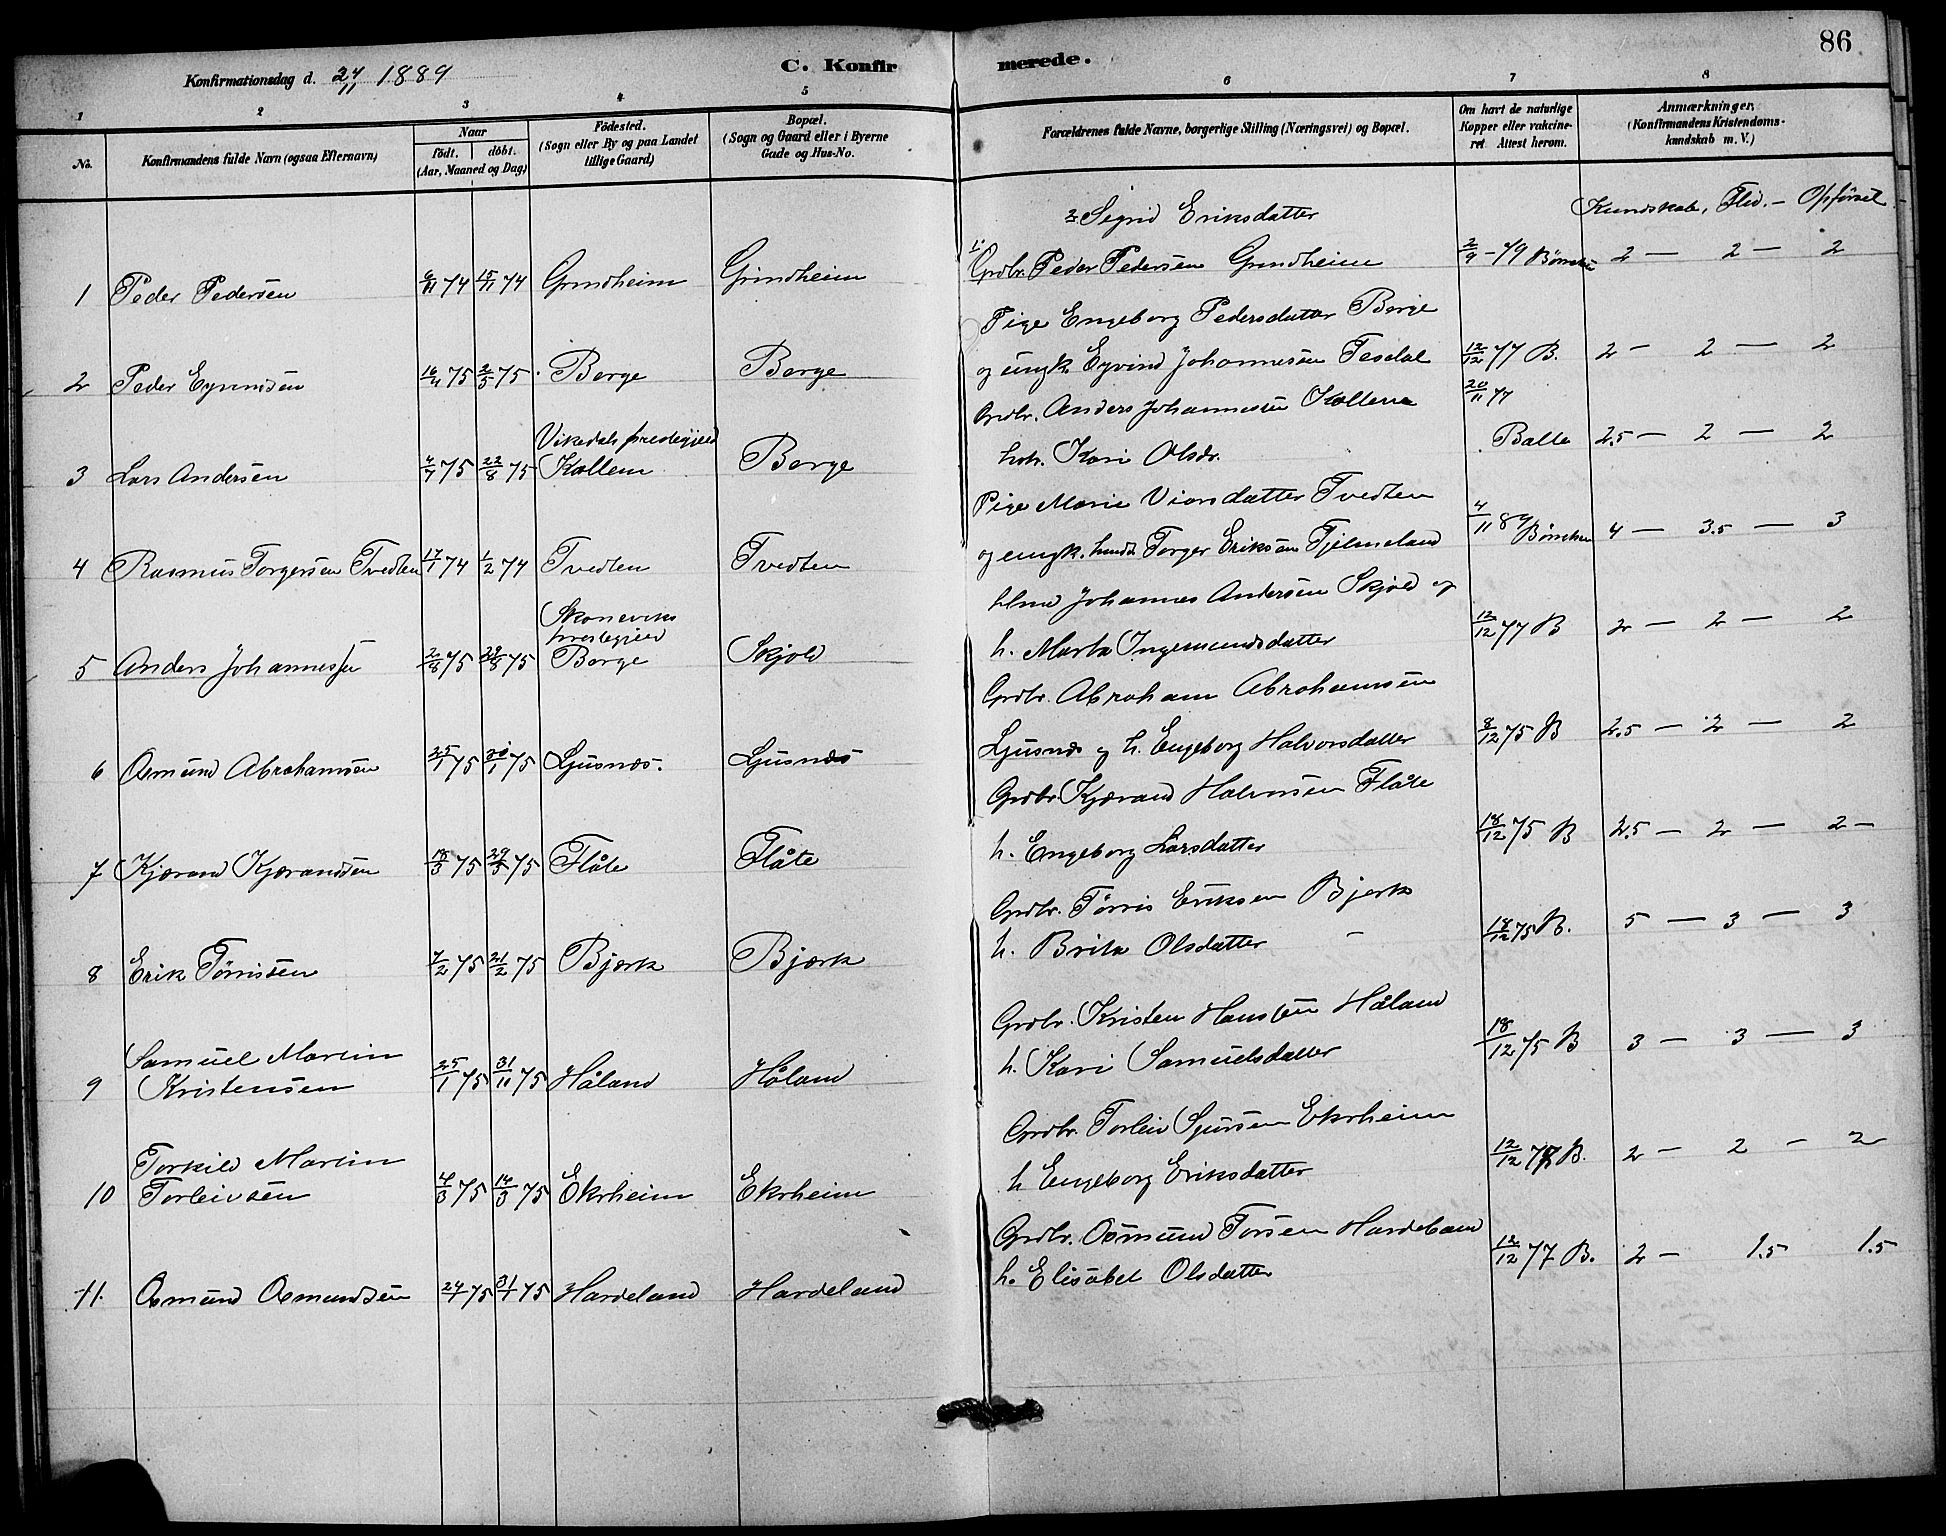 86
Konfirmationsdag d. 24/11 1889
C. Konfirmerede.
1 2 3 4 5 6 7 8
No.
Konfirmandens fulde Navn (ogsaa Efternavn)
Naar
födt. döbt.
(Aar, Maaned og Dag)
Födested.
(Sogn eller By og paa Landet
tillige Gaard)
Bopæl.
(Sogn og Gaard eller i Byerne
Gade og Hus-No.
Forældrenes fulde Navne, borgerlige Stilling (Næringsvei) og Bopæl.
Om havt de naturlige
Kopper eller vakcine-
ret Attest herom.
Anmærkninger,
(Konfirmandens Kristendoms-
kundskab m. V.)
Kundskab, Flid. - Opförsel
2. Sigrid Eriksdatter
1 Peder Pedersen 6/11 74 15/11 74 Grindheim Grindheim 1. Grdbr. Peder Pedersen Grindheim 2/9 - 79 2 - 2 - 2
Pige Engeborg Pedersdatter Berge
2 Peder Eyvindsen 16/4 75 2/5 75 Berge Berge og ungk. Eyvind Johannesen Tesdal 12/12 77 B. 2 - 2 - 2
Grdbr. Anders Johannesen Kallem 20/11 77
Vikedals prestegjeld
3 Lars Andersen 4/7 75 22/8 75 Kallem Berge Kari Olsdr. Balle 2.5 - 2 - 2
Pige Marie Viarsdatter Tvedten
4 Rasmus Torgersen Tvedten 17/1 74 1/2 74 Tvedten Tvedten og ungk. Torger Eriksen Fjelmeland 4/11 89 4 - 3.5 - 3
Johannes Andersen Skjold og
Skoneviks
prestegjeld
5 Anders Johannessen 2/8 75 29/8 75 Berge Skjold h. Marta Ingemundsdatter 12/12 77 B 2 - 2 - 2
Grdbr. Abraham Abrahamsen
6 Asmund Abrahamsen 25/1 75 75 Ljusnæs. Ljusnæs Ljusnæs og h. Engeborg Halvorsdatter 8/12 75 B 2.5 - 2 - 2
Grdbr. Kjærand Halvorsen Flåte
7 Kjærand Kjærandsen 18/3 75 29/3 75 Flåte Flåte h. Engeborg Larsdatter 18/12 75 B 2.5 - 2 - 2 -
Grdbr. Törris Eriksen Bjerk
8 Erik Törrissen 7/2 75 21/2 75 Bjærk Bjærk h. Brita Olsdatter 18/12 75 B. 5 - 3 - 3
Grdbr. Kristen Hansen Håland
Samuel Martin
9 Kristensen 25/1 75 31/11 75 Håland Håland h. Kari Samuelsdatter 18/12 75 B 3 - 3 - 3
Grdbr. Torleiv Sjursen Ekrheim
Torkild Martin
10 Torleivsen 4/3 75 14/3 75 Ekrheim Ekrheim h Engeborg Eriksdatter 12/12 77 B. 2 - 2 - 2
Grdbr. Asmund Torsen Hardeland
11. Asmund Asmundsen 24/1 75 31/1 75 Hardeland Hardeland h. Elisabet Olsdatter 12/12 77 B. 2 - 1.5 1.5